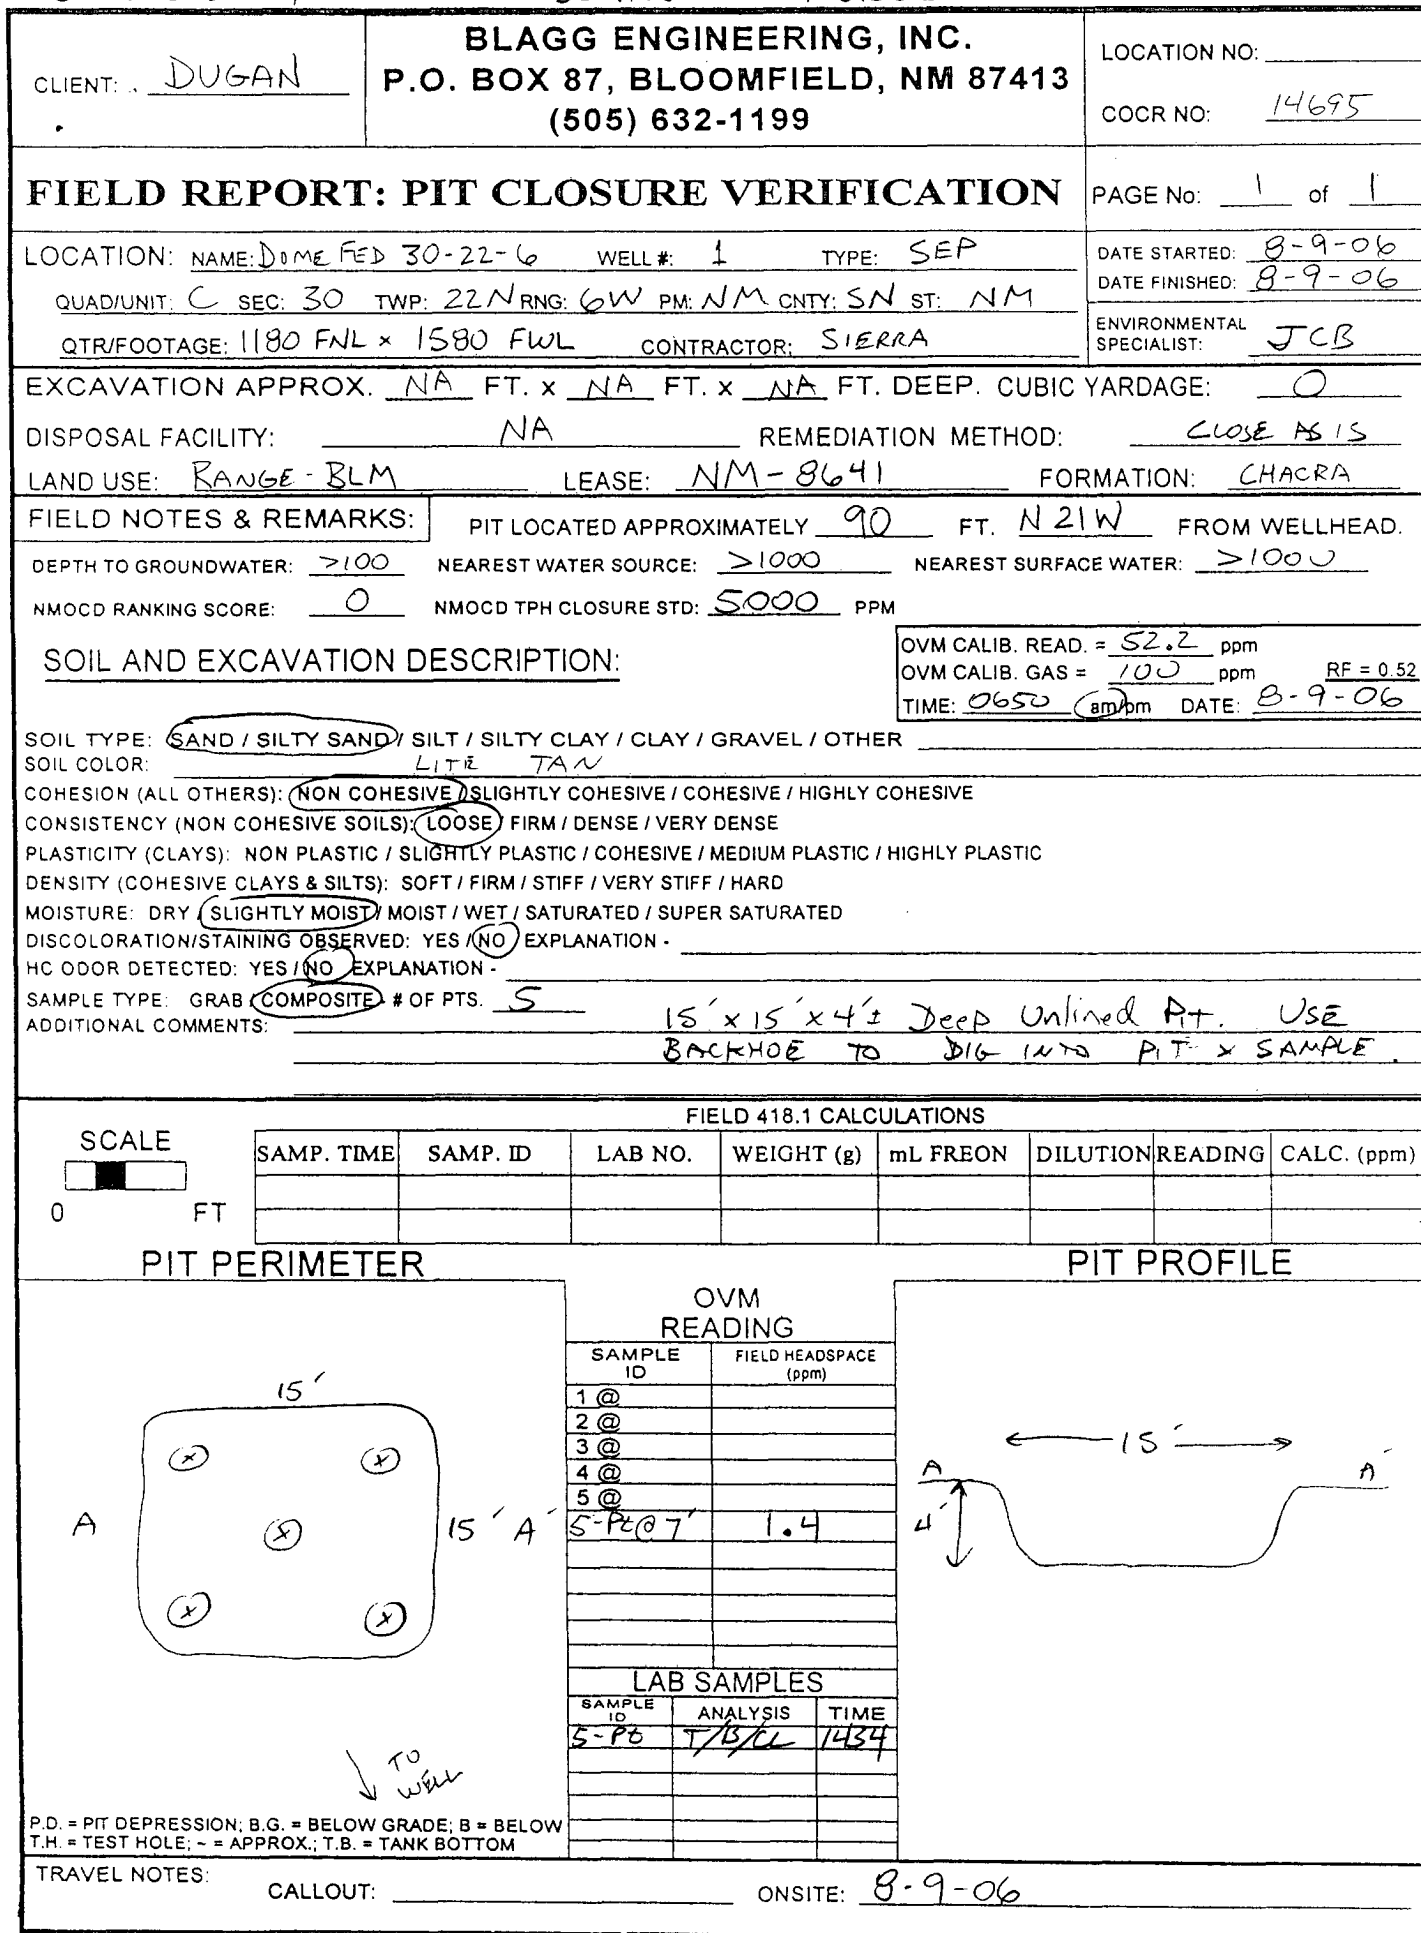 BLAGG ENGINEERING, INC.
P.O. BOX 87, BLOOMFIELD, NM 87413
(505) 632-1199
CLIENT: DUGAN
LOCATION NO:
COCR NO: 14695
FIELD REPORT: PIT CLOSURE VERIFICATION
PAGE No: 1 of 1
LOCATION: NAME: DOME FED 30-22-6 WELL #: 1 TYPE: SEP
QUAD/UNIT: C SEC: 30 TWP: 22N RNG: 6W PM: NM CNTY: SN ST: NM
QTR/FOOTAGE: 1180 FNL x 1580 FWL CONTRACTOR: SIERRA
DATE STARTED: 8-9-06
DATE FINISHED: 8-9-06
ENVIRONMENTAL
SPECIALIST: JCB
EXCAVATION APPROX. NA FT. x NA FT. x NA FT. DEEP. CUBIC YARDAGE: 0
DISPOSAL FACILITY: NA REMEDIATION METHOD: CLOSE AS IS
LAND USE: RANGE - BLM LEASE: NM-8641 FORMATION: CHACRA
FIELD NOTES & REMARKS: PIT LOCATED APPROXIMATELY 90 FT. N21W FROM WELLHEAD.
DEPTH TO GROUNDWATER: >100 NEAREST WATER SOURCE: >1000 NEAREST SURFACE WATER: >1000
NMOCD RANKING SCORE: 0 NMOCD TPH CLOSURE STD: 5000 PPM
SOIL AND EXCAVATION DESCRIPTION:
OVM CALIB. READ. = 52.2 ppm
OVM CALIB. GAS = 100 ppm RF = 0.52
TIME: 0650 am/pm DATE: 8-9-06
SOIL TYPE: SAND / SILTY SAND / SILT / SILTY CLAY / CLAY / GRAVEL / OTHER
SOIL COLOR: LITE TAN
COHESION (ALL OTHERS): NON COHESIVE / SLIGHTLY COHESIVE / COHESIVE / HIGHLY COHESIVE
CONSISTENCY (NON COHESIVE SOILS): LOOSE / FIRM / DENSE / VERY DENSE
PLASTICITY (CLAYS): NON PLASTIC / SLIGHTLY PLASTIC / COHESIVE / MEDIUM PLASTIC / HIGHLY PLASTIC
DENSITY (COHESIVE CLAYS & SILTS): SOFT / FIRM / STIFF / VERY STIFF / HARD
MOISTURE: DRY / SLIGHTLY MOIST / MOIST / WET / SATURATED / SUPER SATURATED
DISCOLORATION/STAINING OBSERVED: YES / NO EXPLANATION -
HC ODOR DETECTED: YES / NO EXPLANATION -
SAMPLE TYPE: GRAB / COMPOSITE - # OF PTS. 5
ADDITIONAL COMMENTS: 15' x 15' x 4'± Deep Unlined Pit. USE
BACKHOE TO DIG INTO PIT & SAMPLE.
FIELD 418.1 CALCULATIONS
SCALE
0 FT
SAMP. TIME SAMP. ID LAB NO. WEIGHT (g) mL FREON DILUTION READING CALC. (ppm)
PIT PERIMETER
15'
A
15' A'
TO
WELL
P.D. = PIT DEPRESSION; B.G. = BELOW GRADE; B = BELOW
T.H. = TEST HOLE; ~ = APPROX.; T.B. = TANK BOTTOM
OVM
READING
SAMPLE ID FIELD HEADSPACE (ppm)
1 @
2 @
3 @
4 @
5 @
5-Pt @ 7' 1.4
LAB SAMPLES
SAMPLE ID ANALYSIS TIME
5-Pt T/B/CL 1434
PIT PROFILE
15'
A A'
4'
TRAVEL NOTES: CALLOUT: ONSITE: 8-9-06